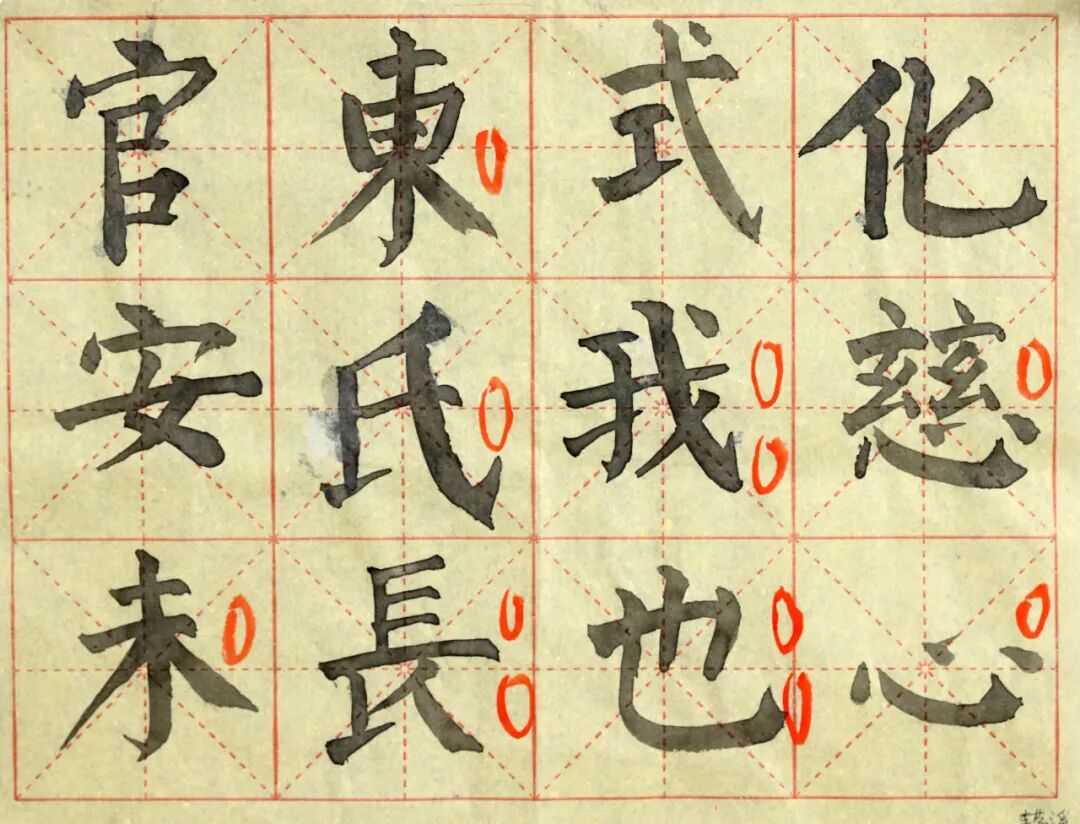 化慈心
式我也
東氏長
官安未